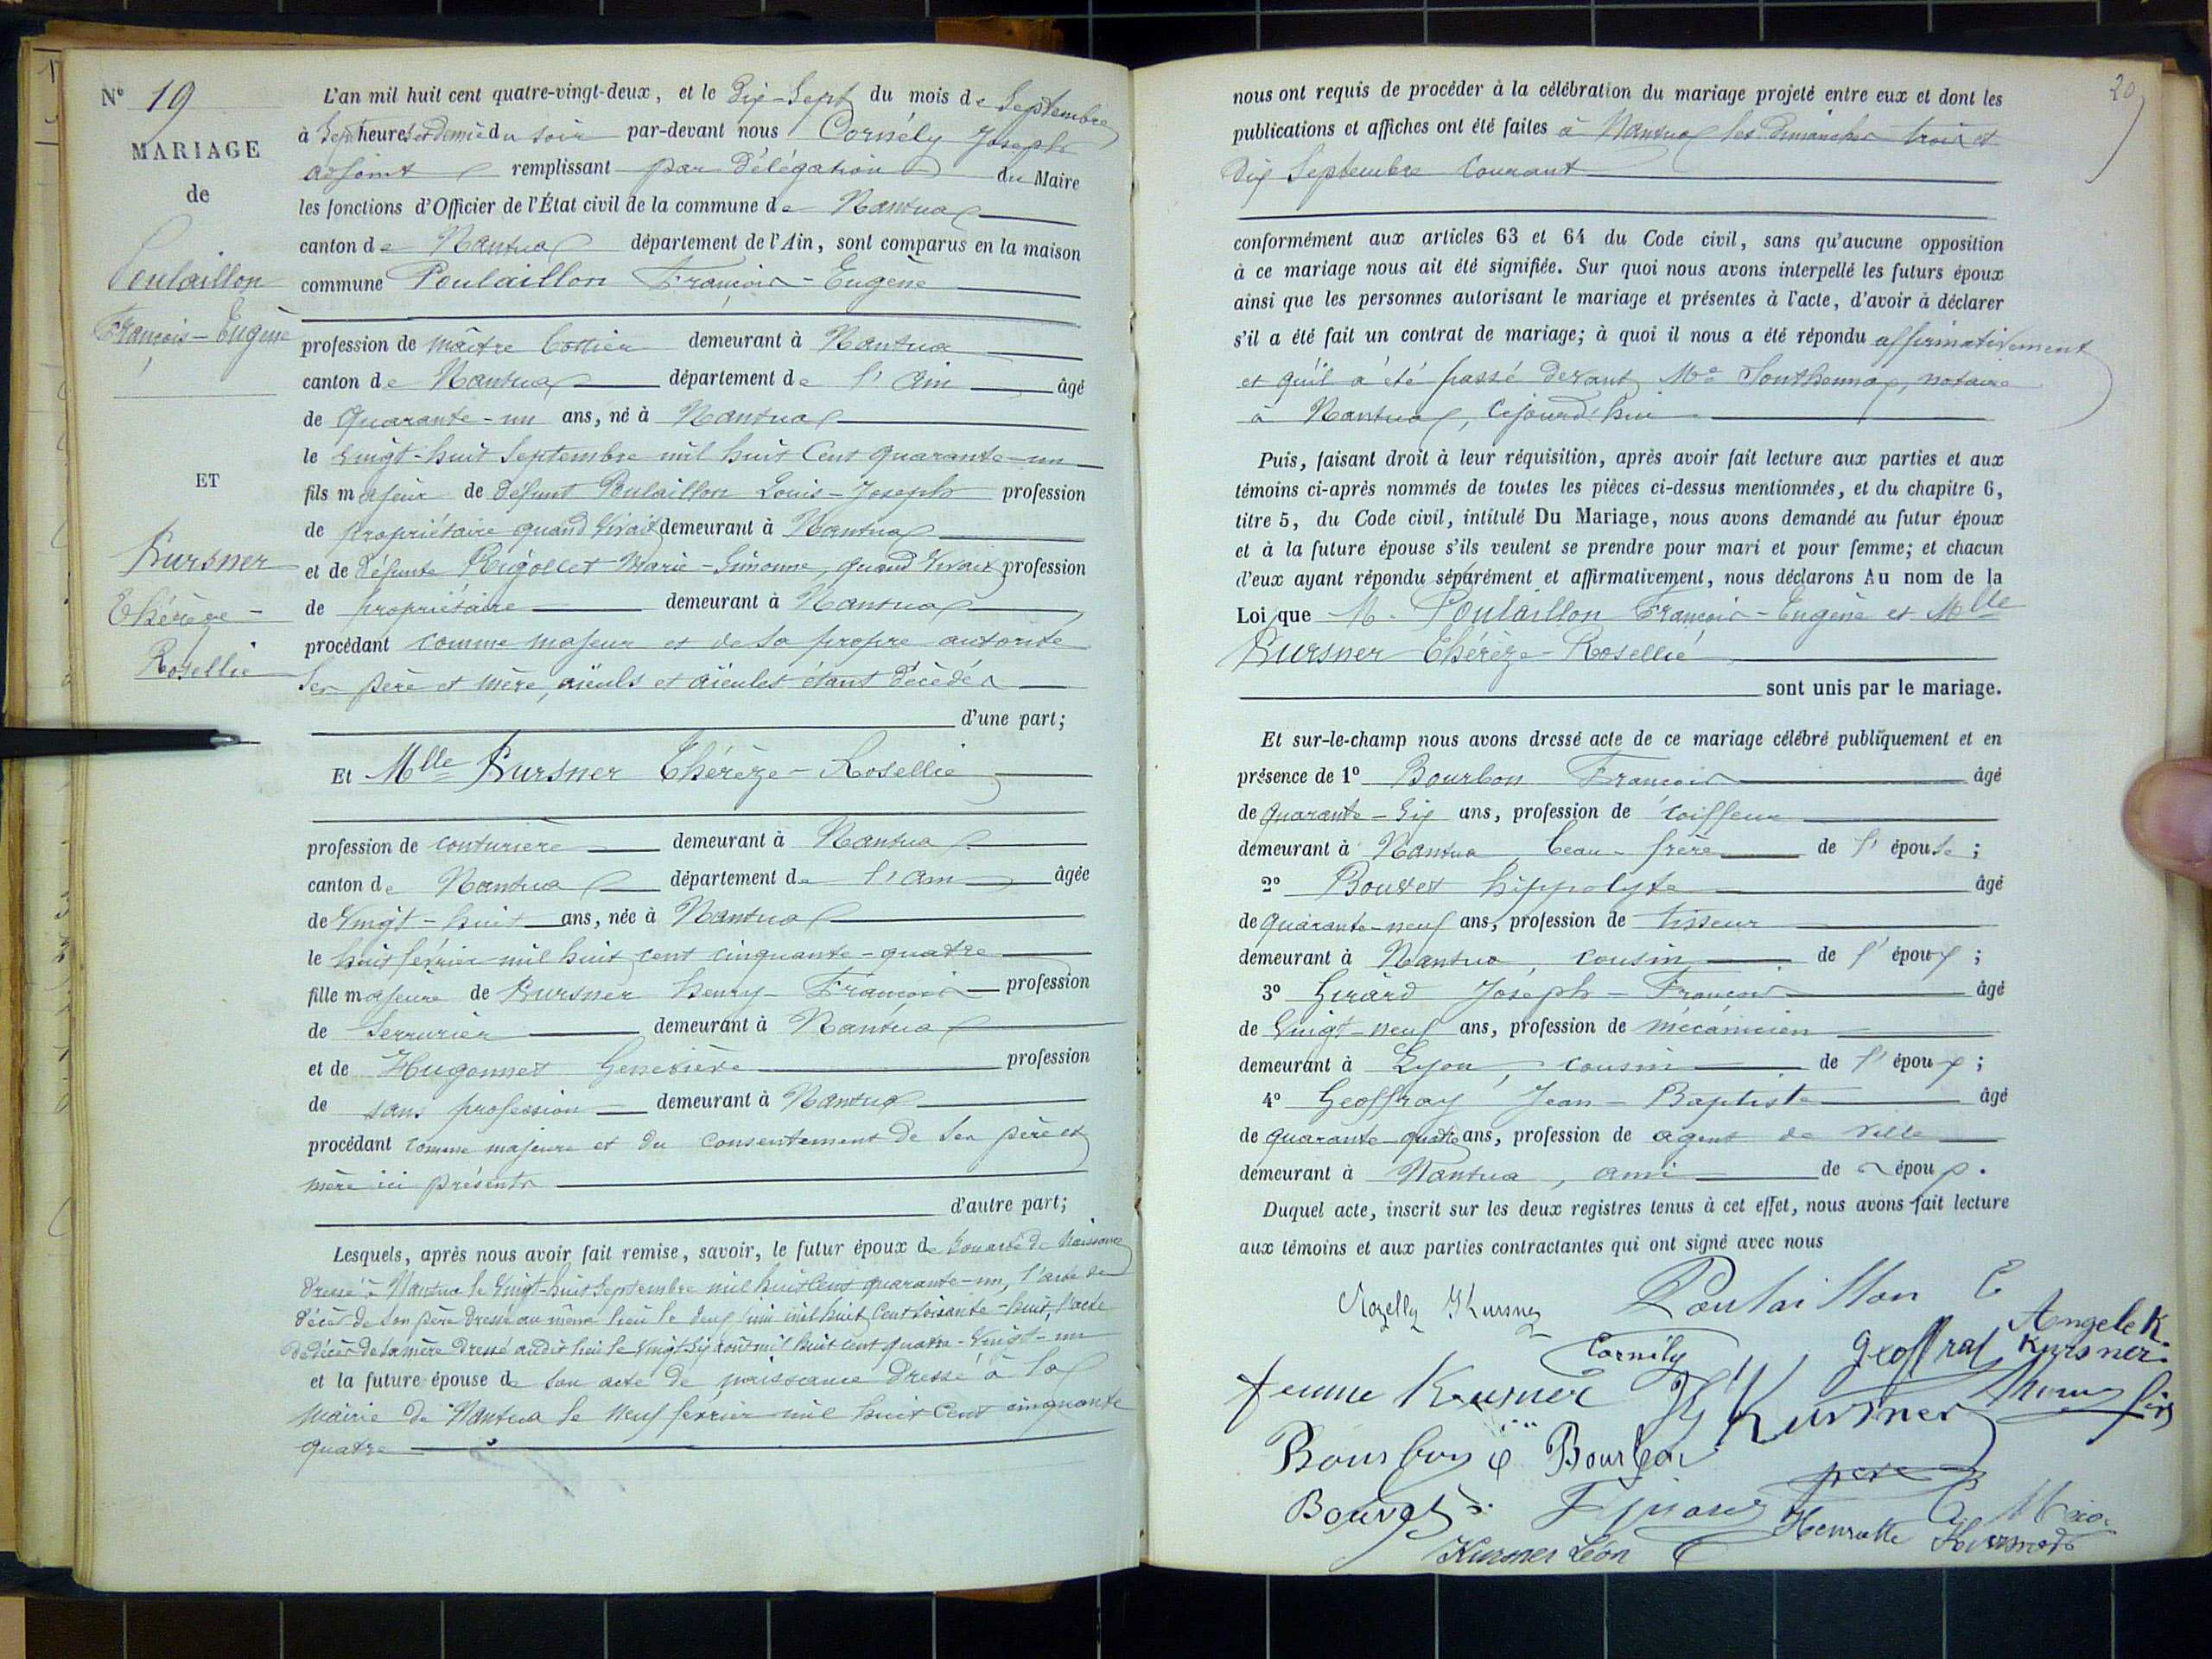 N° 19
MARIAGE
de
Poulaillon
François-Eugène
ET
Kursner
Thérèze-
Rosellie
L'an mil huit cent quatre-vingt-deux, et le dix-Sept du mois de Septembre
à Sept heures et demie du soir par-devant nous Cornély Joseph
adjoint remplissant par délégation du Maire
les fonctions d'Officier de l'État civil de la commune de Nantua
canton de Nantua département de l'Ain, sont comparus en la maison
commune Poulaillon François-Eugène
profession de maître demeurant à Nantua
canton de Nantua département de l'Ain âgé
de Quarante-un ans, né à Nantua
le Vingt-huit Septembre mil huit Cent Quarante-un
fils majeur de défunt Poulaillon Louis-Joseph profession
de propriétaire quand vivait demeurant à Nantua
et de défunte Rigollet Marie-Simonne, quand vivait profession
de propriétaire demeurant à Nantua
procédant comme majeur et de sa propre autorité
Ses père et mère, aïeuls et aïeules étant décédés
d'une part;
Et Mlle Kursner Thérèze-Rosellie
profession de couturière demeurant à Nantua
canton de Nantua département de l'Ain âgée
de Vingt-huit ans, née à Nantua
le huit février mil huit cent cinquante-quatre
fille majeure de Kursner henry-François profession
de Serrurier demeurant à Nantua
et de Hugonnet Geneviève profession
de sans profession demeurant à Nantua
procédant comme majeure et du consentement de ses père et
mère ici présents
d'autre part;
Lesquels, après nous avoir fait remise, savoir, le futur époux de son acte de Naissance
dressé à Nantua le Vingt-huit Septembre mil huit Cent quarante-un, l'acte de
décès de son père dressé au même lieu le deux juin mil huit Cent soixante-huit, l'acte
de décès de sa mère dressé audit lieu le vingt Six août mil huit cent quatre-vingt-un
et la future épouse de son acte de naissance dressé à la
mairie de Nantua le neuf février mil huit Cent cinquante
quatre
20
nous ont requis de procéder à la célébration du mariage projeté entre eux et dont les
publications et affiches ont été faites à Nantua les dimanches trois et
dix Septembre Courant
conformément aux articles 63 et 64 du Code civil, sans qu'aucune opposition
à ce mariage nous ait été signifiée. Sur quoi nous avons interpellé les futurs époux
ainsi que les personnes autorisant le mariage et présentes à l'acte, d'avoir à déclarer
s'il a été fait un contrat de mariage; à quoi il nous a été répondu affirmativement
et qu'il a été passé devant Me Southonnax, notaire
à Nantua, cejourd'hui
Puis, faisant droit à leur réquisition, après avoir fait lecture aux parties et aux
témoins ci-après nommés de toutes les pièces ci-dessus mentionnées, et du chapitre 6,
titre 5, du Code civil, intitulé Du Mariage, nous avons demandé au futur époux
et à la future épouse s'ils veulent se prendre pour mari et pour femme; et chacun
d'eux ayant répondu séparément et affirmativement, nous déclarons Au nom de la
Loi que M. Poulaillon François-Eugène et Mlle
Kursner Thérèze-Rosellie
sont unis par le mariage.
Et sur-le-champ nous avons dressé acte de ce mariage célébré publiquement et en
présence de 1° Bourbon François âgé
de Quarante-Six ans, profession de coiffeur
demeurant à Nantua beau-frère de l'épouse;
2° Bouvet hippolyte âgé
de quarante-neuf ans, profession de tisseur
demeurant à Nantua, cousin de l'époux;
3° Girard Joseph-François âgé
de Vingt-neuf ans, profession de mécanicien
demeurant à Lyon, cousin de l'époux;
4° Geoffray Jean-Baptiste âgé
de quarante-quatre ans, profession de agent de ville
demeurant à Nantua, ami de époux.
Duquel acte, inscrit sur les deux registres tenus à cet effet, nous avons fait lecture
aux témoins et aux parties contractantes qui ont signé avec nous
Rozelly Kursner Poulaillon E
Cornély Geoffray Angele K
Kursner
femme Kursner H Kursner fils
père
Bourbon Bourbon
Bouvet Henriette Kursner
Kursner Léon